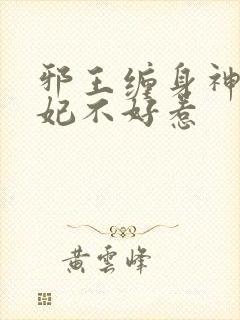 邪王缠身神
妃不好惹
黄雲峰